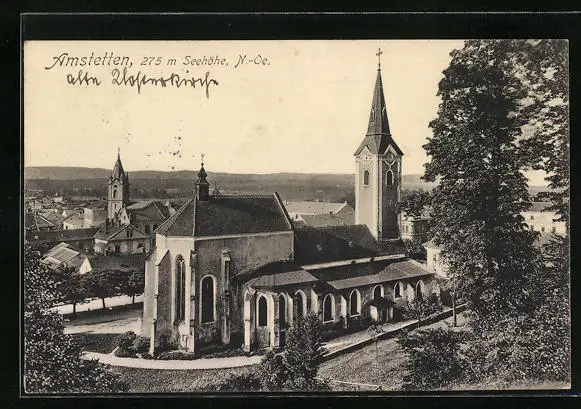 Amstetten, 275 m Seehöhe, N.-Oe.
alte Klosterkirche